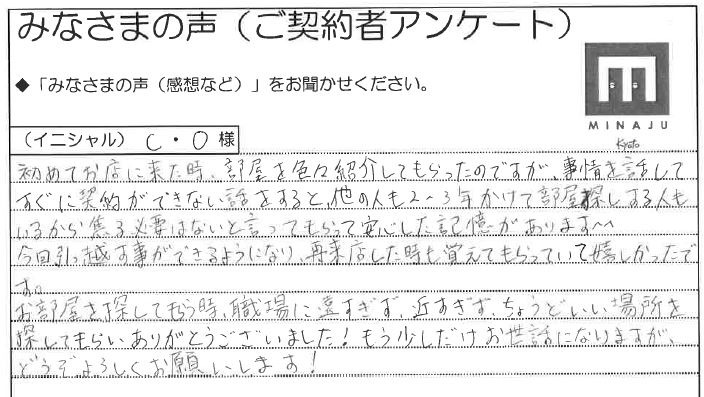 みなさまの声（ご契約者アンケート）
◆「みなさまの声（感想など）」をお聞かせください。
MINAJU
Kyoto
（イニシャル） C・O 様
初めてお店に来た時、部屋を色々紹介してもらったのですが、事情を話して
すぐに契約ができない話をすると、他の人も2～3年かけて部屋探しする人も
いるから焦る必要はないと言ってもらって安心した記憶があります～
今回引っ越す事ができるようになり、再来店した時も覚えてもらっていて嬉しかったで
す。
お部屋を探してもらう時、職場に遠すぎず、近すぎず、ちょうどいい場所を
探してもらいありがとうございました！もう少しだけお世話になりますが、
どうぞよろしくお願いします！